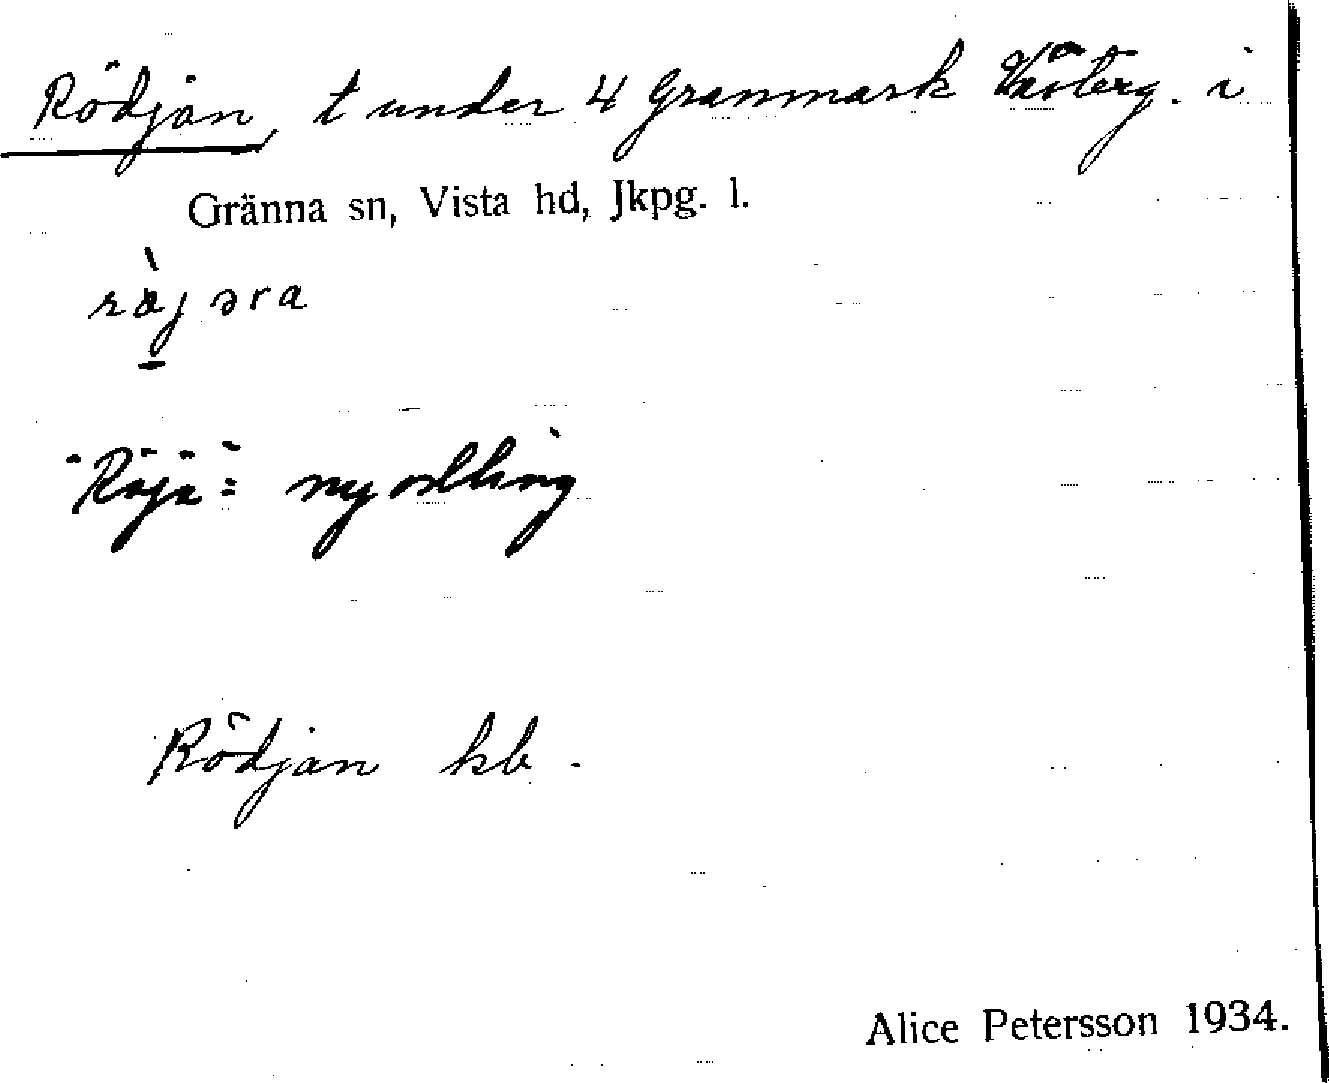 Rödjan, t under 4 Granmark Västerg. i
Gränna sn, Vista hd, Jkpg. l.
"Röja": nyodling
Rödjan kb.
Alice Petersson 1934.